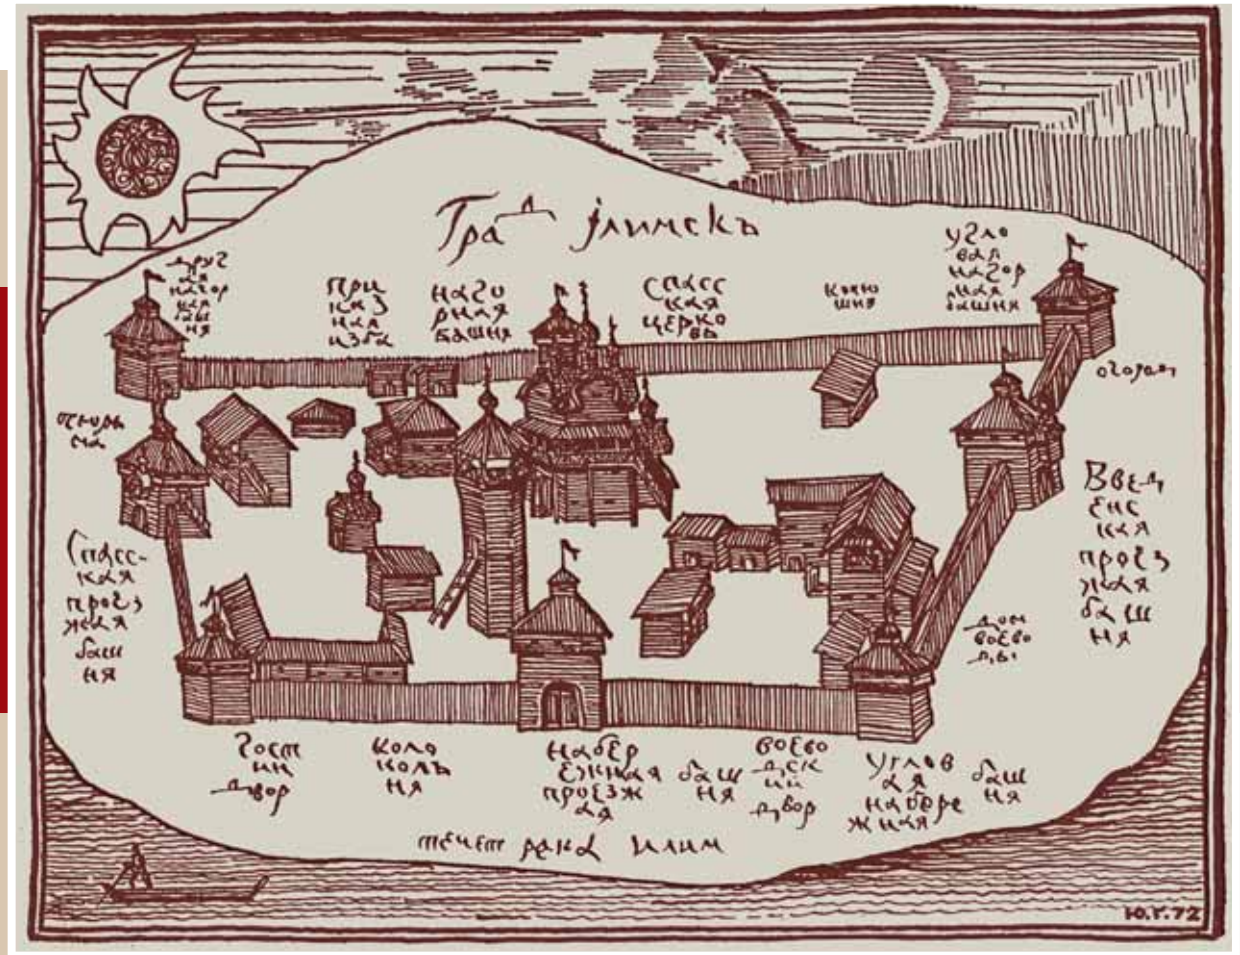 Град Iлимскъ
друг
ая
нагор
ная
баш
ня
при
каз
ная
изба
наго
рная
башня
спасс
кая
церко
вь
коню
шня
угло
вая
нагор
ная
башня
тюрь
ма
Спасс-
кая
проез
жая
баш
ня
Введ
енс
кая
проез
жая
баш
ня
дом
воево
ды
гост
ин
двор
коло
коль
ня
набер
ежная
проезж
ая
баш
ня
воево
дск
ий
двор
углов
ая
набере
жная
баш
ня
течет река Илим
Ю.Г.72